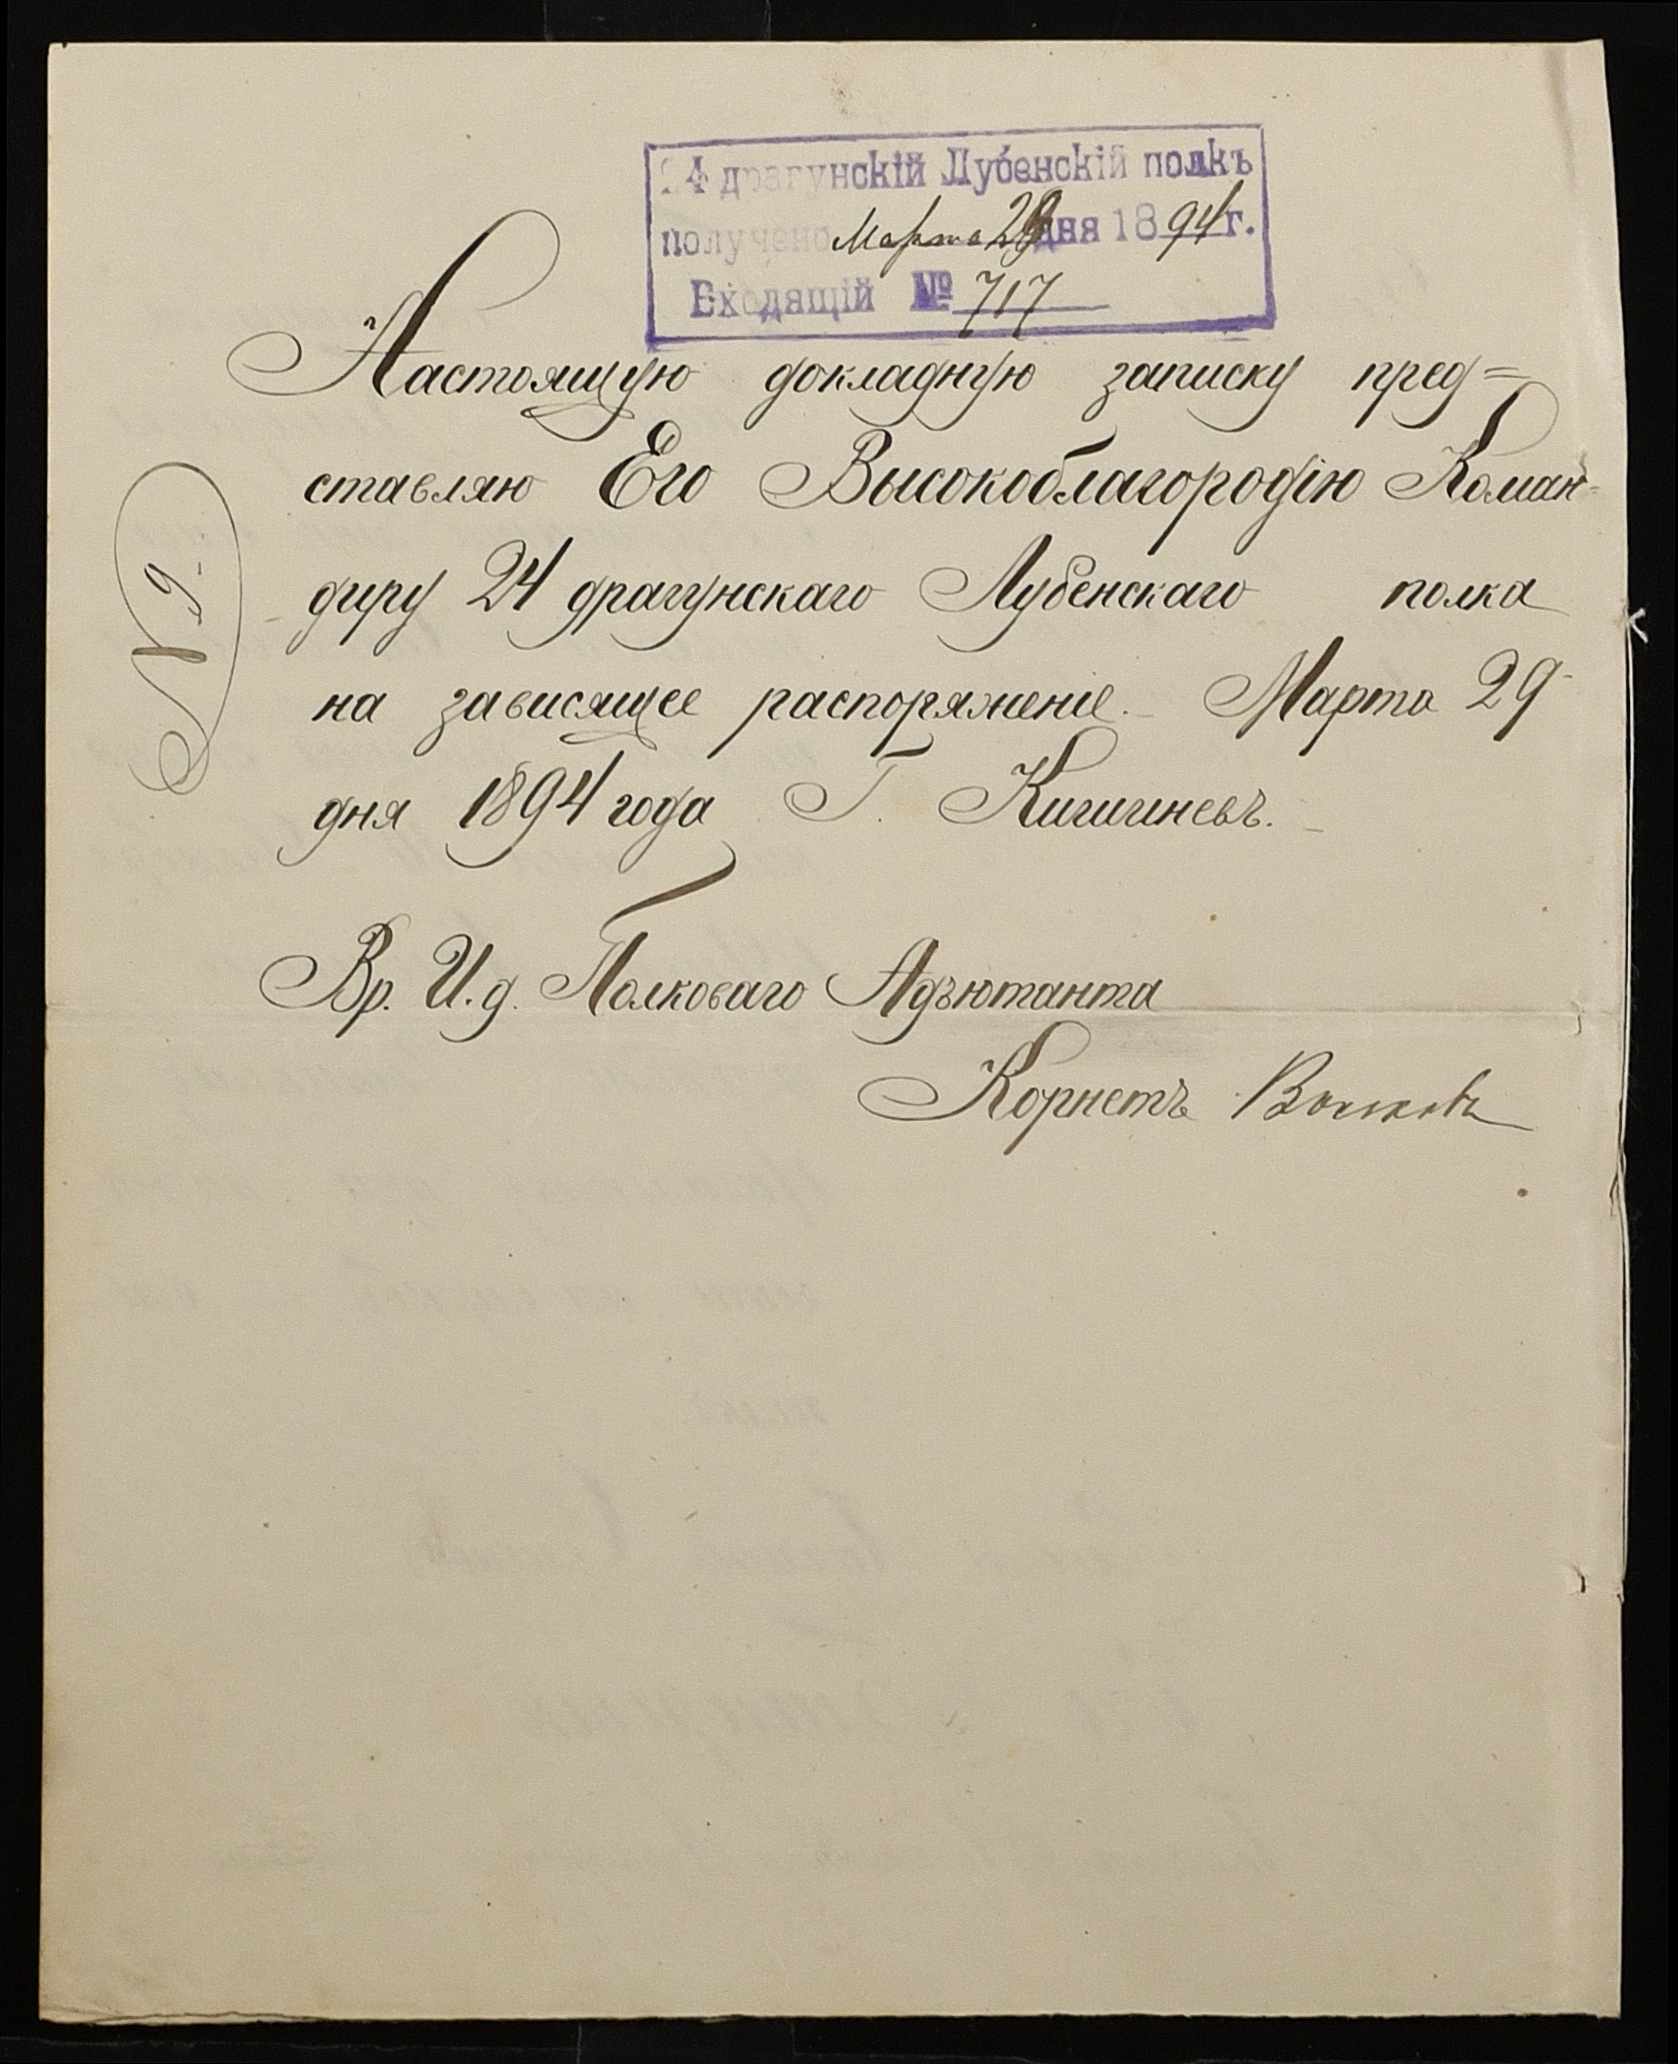 24 драгунскій Лубенскій полкъ
получено Марта 29 дня 1894 г.
Входящій № 717
Настоящую докладную записку пред=
ставляю Его Высокоблагородію Коман=
диру 24 драгунскаго Лубенскаго полка
на зависящее распоряженіе. Марта 29
дня 1894 года Г. Кишиневъ.
N 9
Вр. И. д. Полковаго Адъютанта
Корнетъ Волковъ